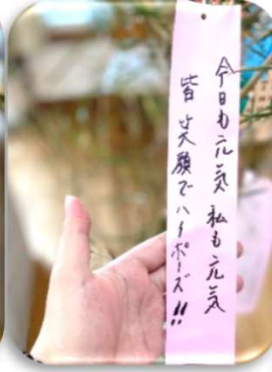 今日も元気 私も元気
皆 笑顔でハイポーズ!!